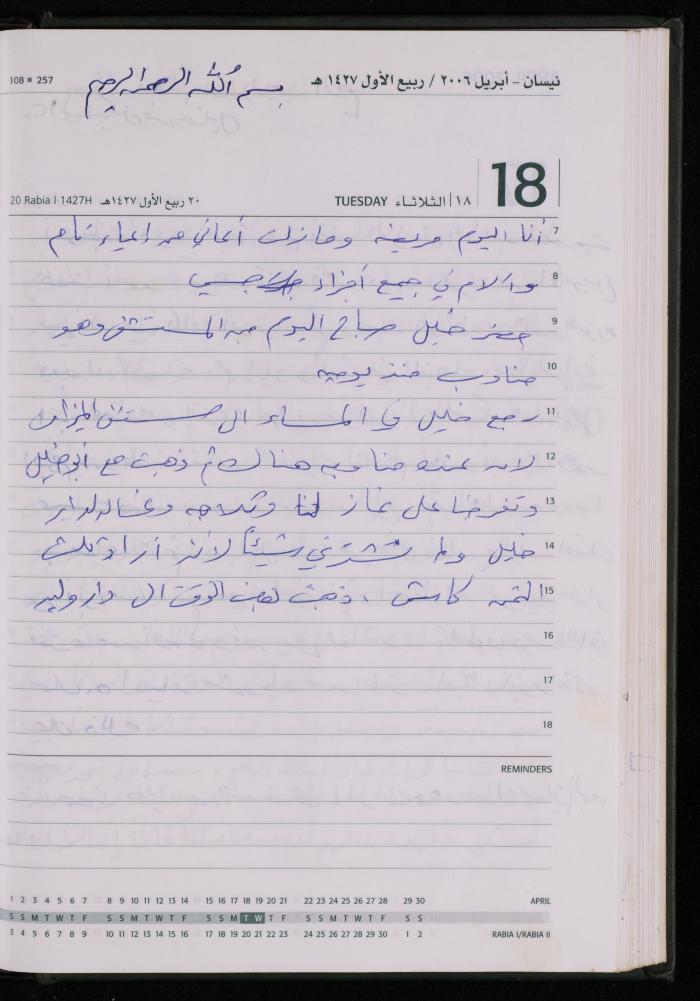 108 ■ 257
نيسان - أبريل ٢٠٠٦ / ربيع الأول ١٤٢٧ هـ
بسم الله الرحمن الرحيم
18
20 Rabia I 1427H ٢٠ ربيع الأول ١٤٢٧هـ
TUESDAY ١٨ الثلاثاء
7 أنا اليوم مريضة ومازلت أعاني من اعياء تام
8 وآلام في جميع أجزاء جسمي
9 حضر خليل صباح اليوم من المستشفى وهو
10 مناوب منذ يومين
11 رجع خليل في المساء الى مستشفى الميزان
12 لان عنده مناوبه هناك ثم ذهبت مع أبو خليل
13 وتفرجنا على غاز وثلاجه وغساله لدار
14 خليل ولم نشتري شيئاً لأننا أراد
15 الثمن كاش . ذهبت بعض الوقت الى دار وليد
16
17
18
REMINDERS
1 2 3 4 5 6 7 8 9 10 11 12 13 14 15 16 17 18 19 20 21 22 23 24 25 26 27 28 29 30 APRIL
S S M T W T F S S M T W T F S S M T W T F S S M T W T F S S
3 4 5 6 7 8 9 10 11 12 13 14 15 16 17 18 19 20 21 22 23 24 25 26 27 28 29 30 1 2 RABIA I/RABIA II